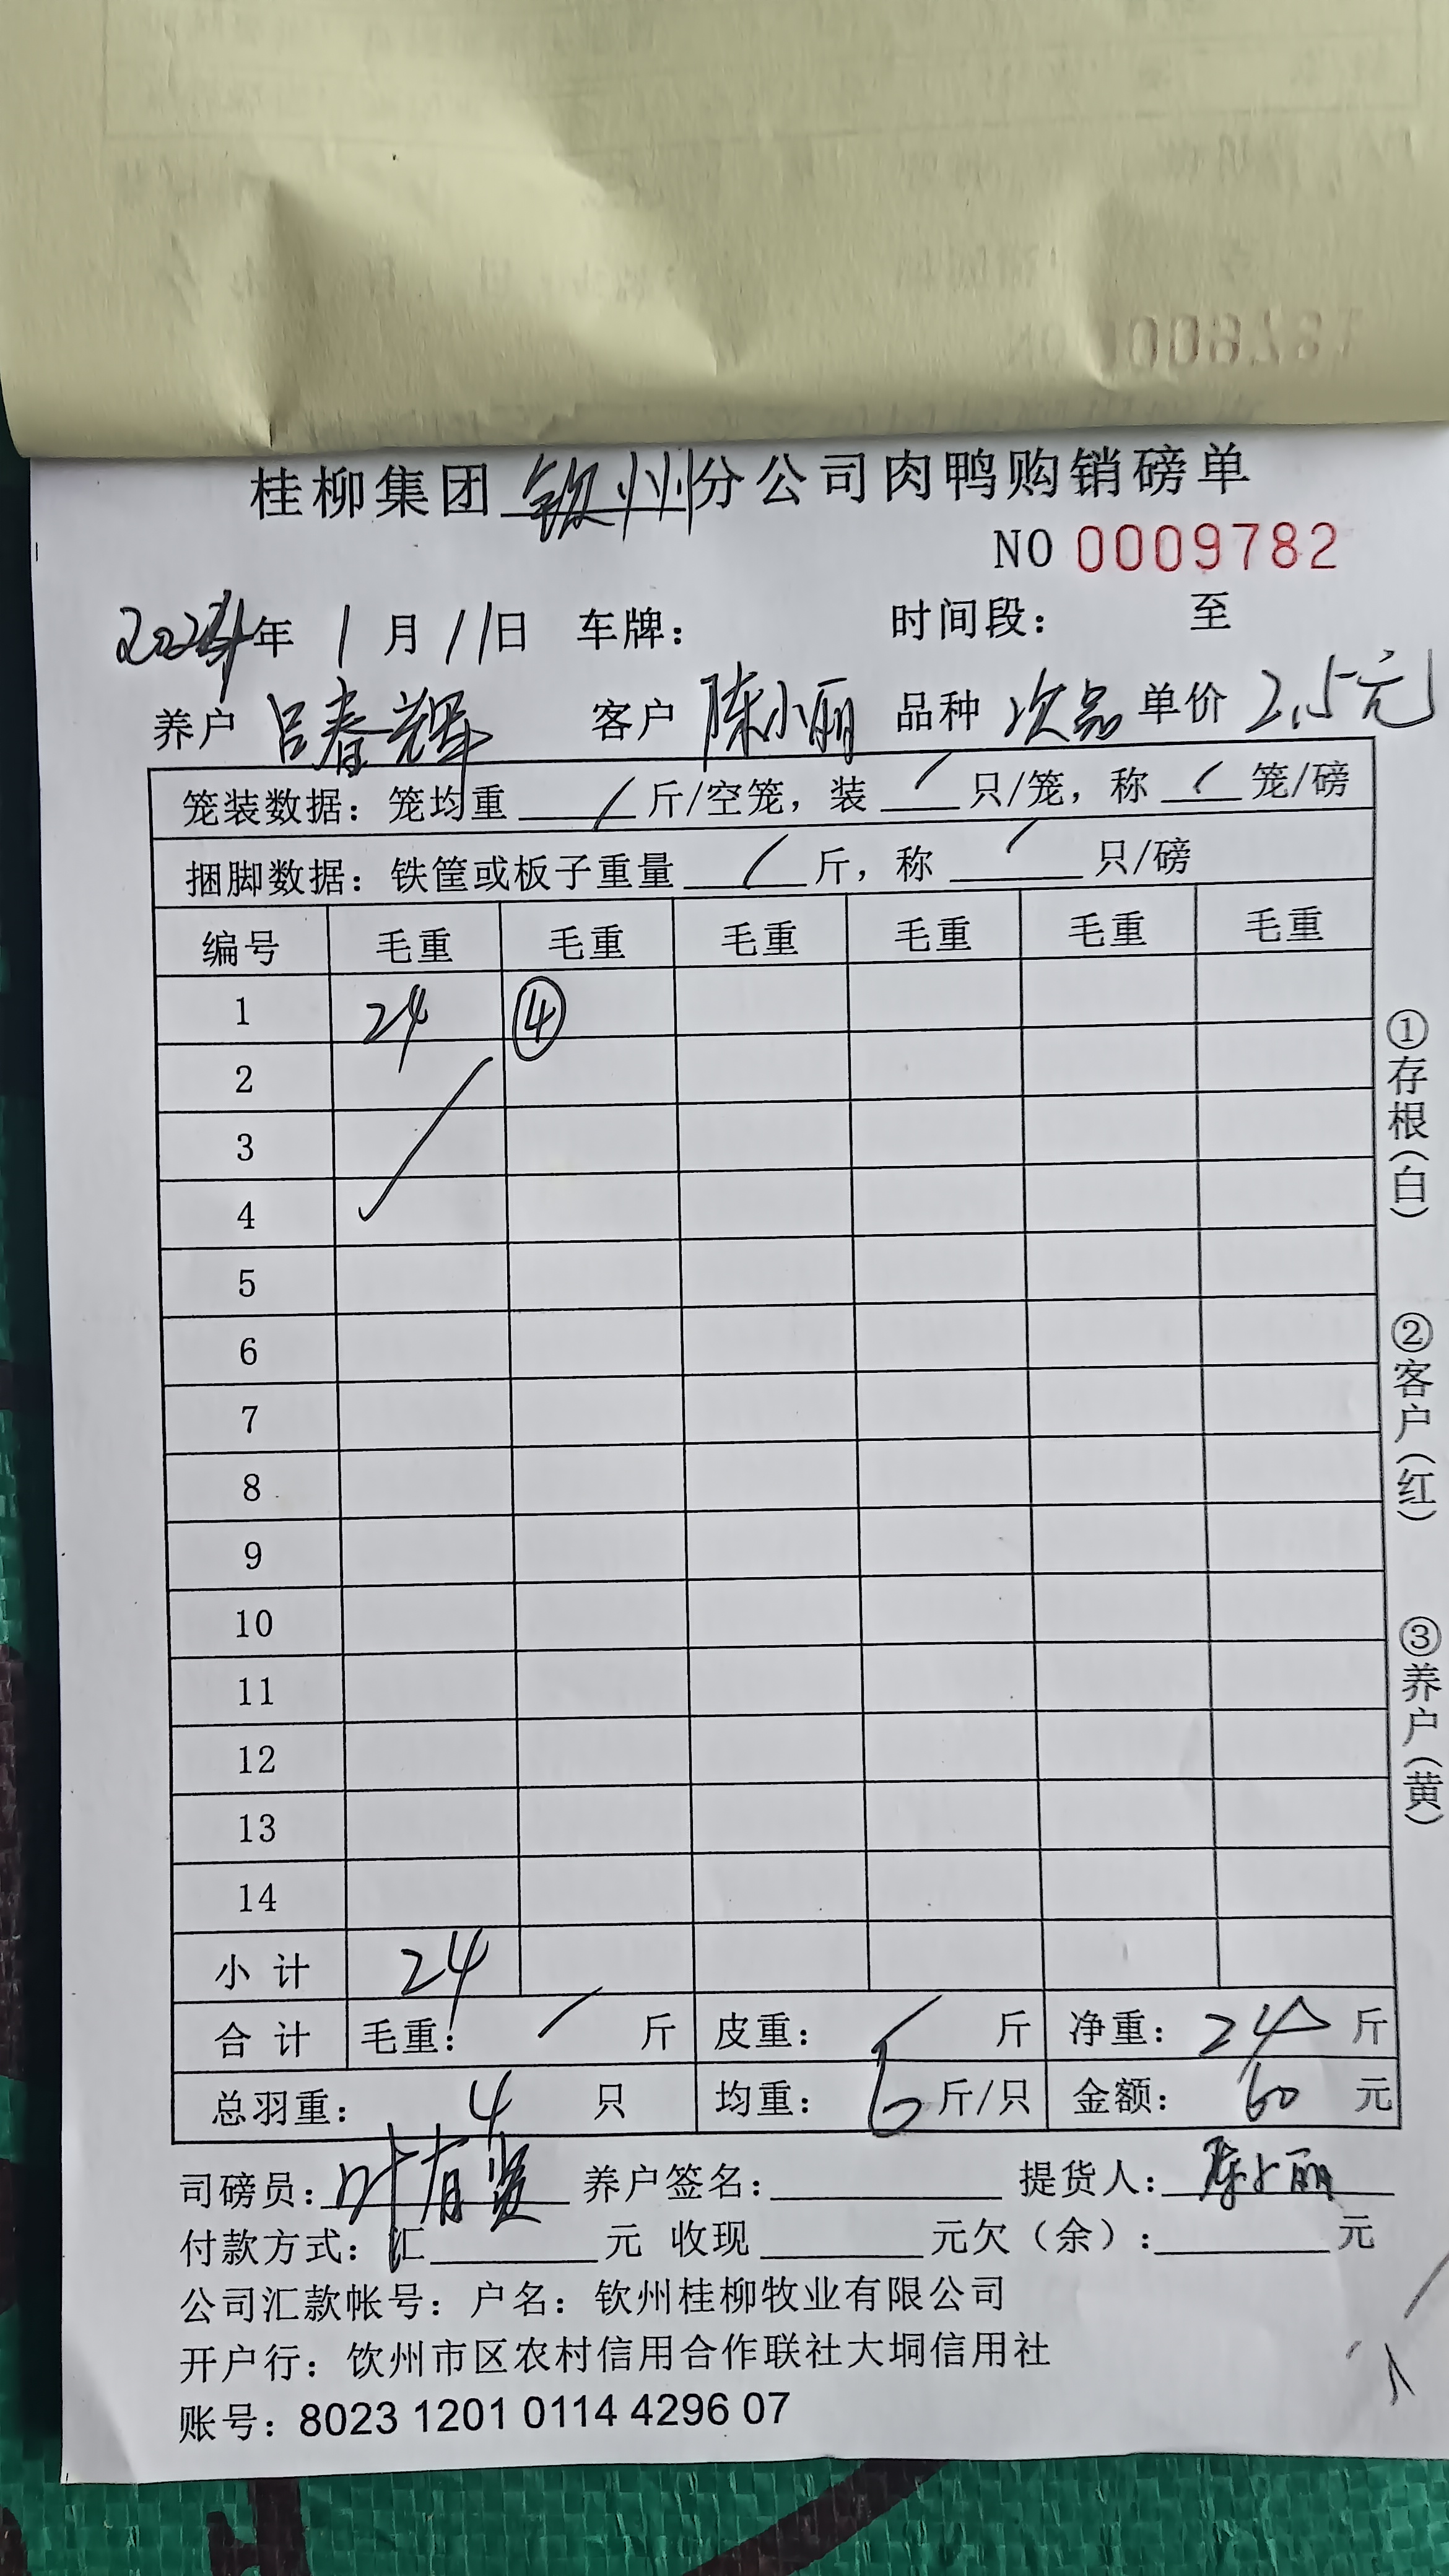 桂柳集团钦州分公司肉鸭购销磅单
NO 0009782
2024年 1月 11日 车牌： 时间段： 至
养户 吕春辉 客户 陈小丽 品种 次品 单价 2.5元
笼装数据：笼均重 / 斤/空笼，装 / 只/笼，称 / 笼/磅
捆脚数据：铁筐或板子重量 / 斤，称 / 只/磅
编号 毛重 毛重 毛重 毛重 毛重 毛重
1 24 ④
2
3
4
5
6
7
8
9
10
11
12
13
14
小计 24
合计 毛重： / 斤 皮重： / 斤 净重：24 斤
总羽重： 4 只 均重： 6 斤/只 金额： 60 元
司磅员：叶有贤 养户签名： 提货人：陈小丽
付款方式：汇 元 收现 元欠（余）： 元
公司汇款帐号：户名：钦州桂柳牧业有限公司
开户行：钦州市区农村信用合作联社大垌信用社
账号：8023 1201 0114 4296 07
①存根（白）
②客户（红）
③养户（黄）